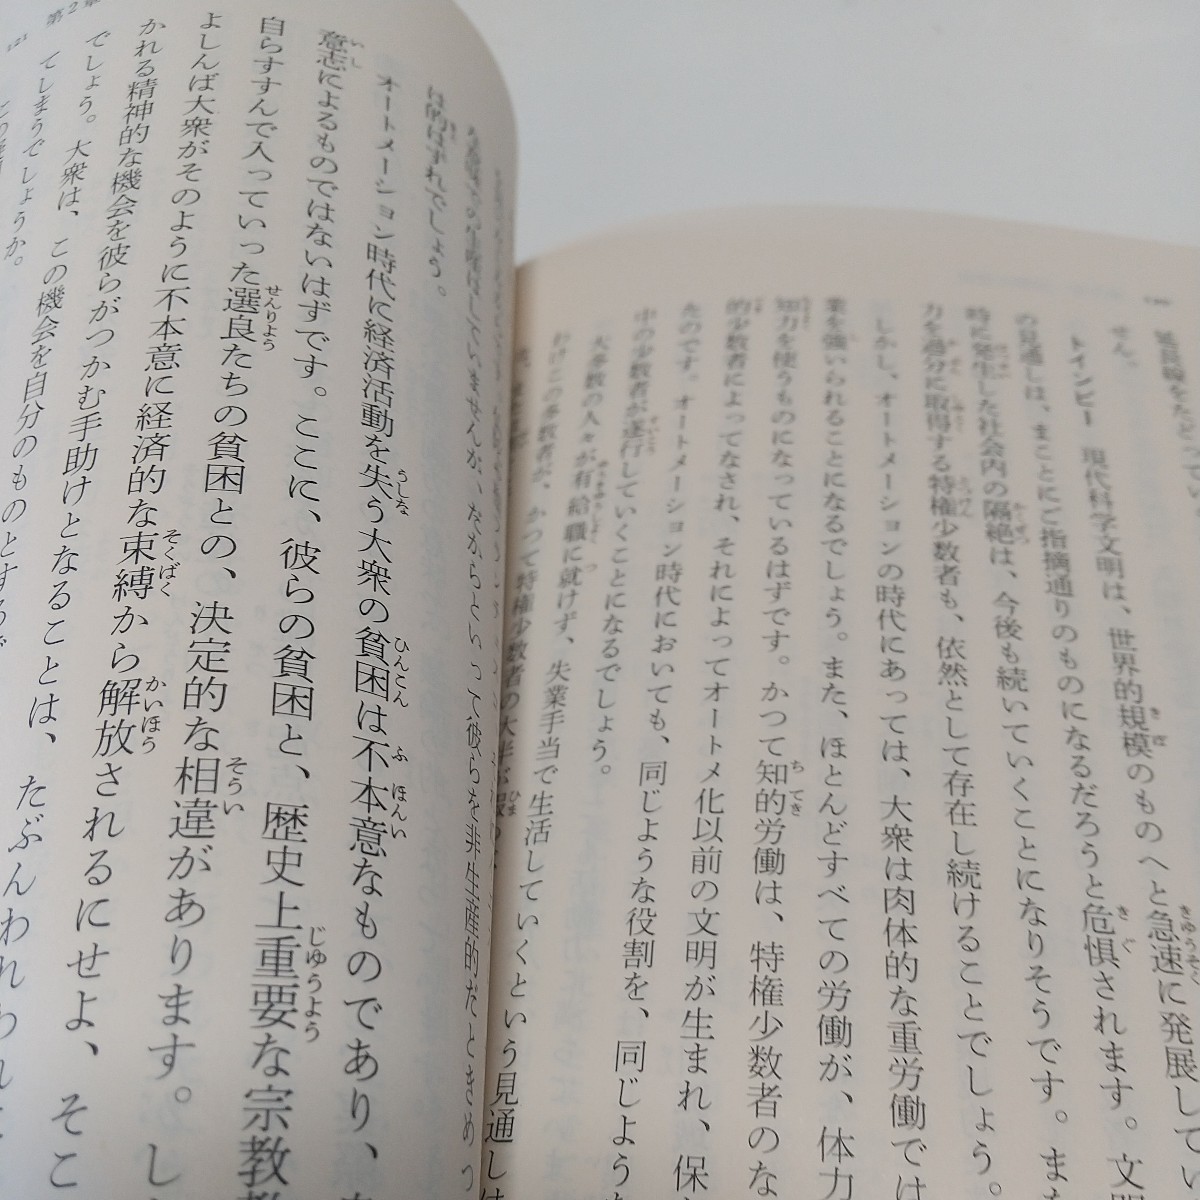 延長線をたどってい
せん。
トインビー　現代科学文明は、世界的規模のものへと急速に発展してい
の見通しは、まことにご指摘通りのものになるだろうと危惧されます。文明
時に発生した社会内の隔絶は、今後も続いていくことになりそうです。また
力を過分に取得する特権少数者も、依然として存在し続けることでしょう。
しかし、オートメーションの時代にあっては、大衆は肉体的な重労働では
業を強いられることになるでしょう。また、ほとんどすべての労働が、体力
知力を使うものになっているはずです。かつて知的労働は、特権少数者のな
的少数者によってなされ、それによってオートメ化以前の文明が生まれ、保
たのです。オートメーション時代においても、同じような役割を、同じよう
中の少数者が遂行していくことになるでしょう。
大多数の人々が有給職に就けず、失業手当で生活していくという見通しは
わけこの多数者が、かつて特権少数者の大半が
は的はずれでしょう。
オートメーション時代に経済活動を失う大衆の貧困は不本意なものであり、
意志によるものではないはずです。ここに、彼らの貧困と、歴史上重要な宗教
自らすすんで入っていった選良たちの貧困との、決定的な相違があります。し
よしんば大衆がそのように不本意に経済的な束縛から解放されるにせよ、そこ
かれる精神的な機会を彼らがつかむ手助けとなることは、たぶんわれわれに
でしょう。大衆は、この機会を自分のものとするで
てしまうでしょうか。
121
第2章